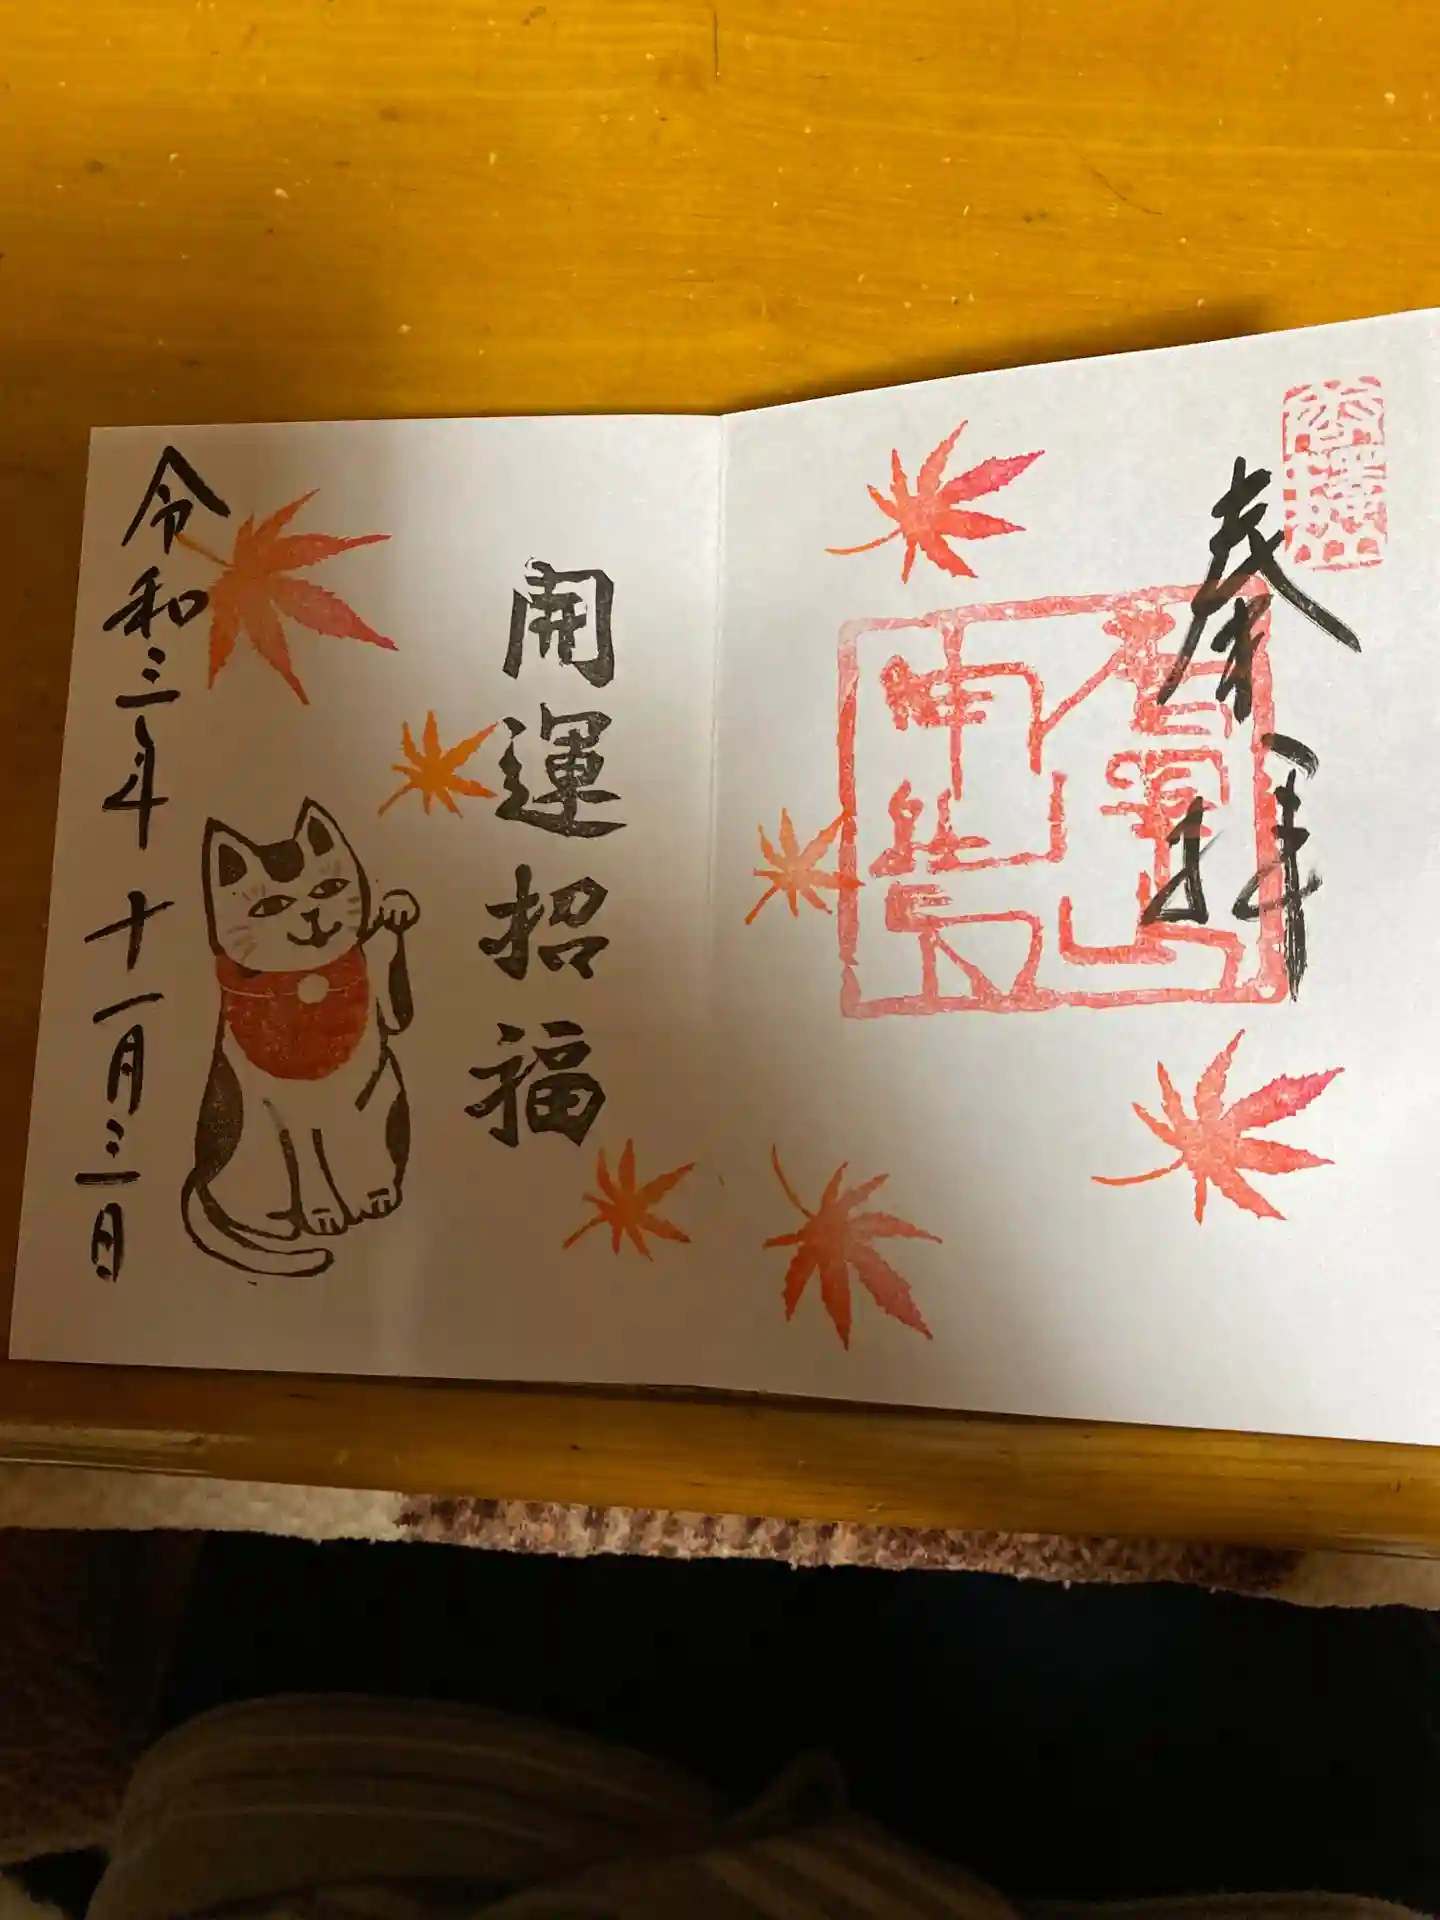 奉拝
開運招福
令和三年十一月三日